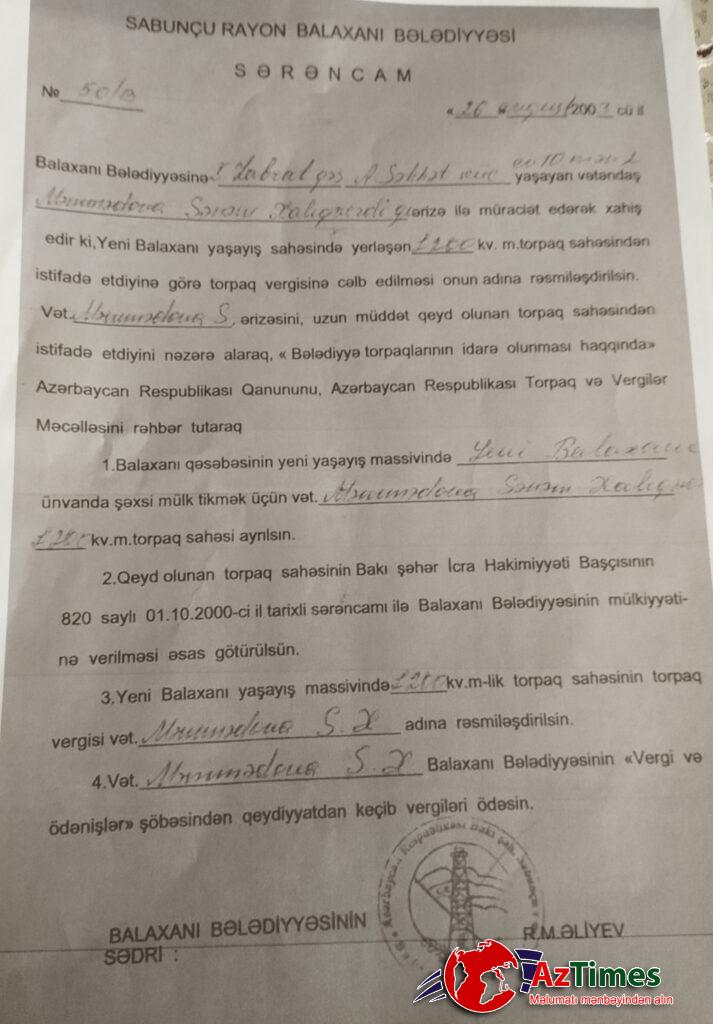 SABUNÇU RAYON BALAXANI BƏLƏDİYYƏSİ
SƏRƏNCAM
№ 50/B
« 26 « avqust 2003 cü il
Balaxanı Bələdiyyəsinə Zabrat qəs A Səhhət küç
yaşayan vətəndaş
Məmmədova Sənəm ərizə ilə müraciət edərək xahiş
edir ki, Yeni Balaxanı yaşayış sahəsində yerləşən 1280 kv. m.torpaq sahəsindən
istifadə etdiyinə görə torpaq vergisinə cəlb edilməsi onun adına rəsmiləşdirilsin.
Vət. Məmmədova S, ərizəsini, uzun müddət qeyd olunan torpaq sahəsindən
istifadə etdiyini nəzərə alaraq, « Bələdiyyə torpaqlarının idarə olunması haqqında»
Azərbaycan Respublikası Qanununu, Azərbaycan Respublikası Torpaq və Vergilər
Məcəlləsini rəhbər tutaraq
1.Balaxanı qəsəbəsinin yeni yaşayış massivində Yeni Balaxanı
ünvanda şəxsi mülk tikmək üçün vət. Məmmədova Sənəm
1280 kv.m.torpaq sahəsi ayrılsın.
2.Qeyd olunan torpaq sahəsinin Bakı şəhər İcra Hakimiyyəti Başçısının
820 saylı 01.10.2000-ci il tarixli sərəncamı ilə Balaxanı Bələdiyyəsinin mülkiyyəti-
nə verilməsi əsas götürülsün.
3.Yeni Balaxanı yaşayış massivində 1280 kv.m-lik torpaq sahəsinin torpaq
vergisi vət. Məmmədova S.X adına rəsmiləşdirilsin.
4.Vət. Məmmədova S.X Balaxanı Bələdiyyəsinin «Vergi və
ödənişlər» şöbəsindən qeydiyyatdan keçib vergiləri ödəsin.
Azərbaycan Respublikası Bakı şəh. Sabunçu
BALAXANI BƏLƏDİYYƏSİNİN
SƏDRİ :
R.M.ƏLİYEV
AzTimes
Məlumatı mənbəyindən alın